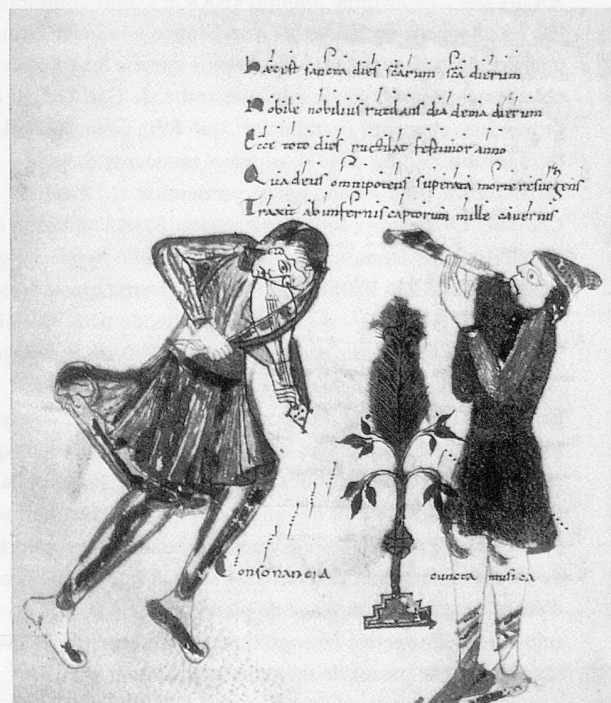 Hæc est sancta dies scarum sca dierum
Nobile nobilius rutilans diadema dierum
Ecce toto dies ructilat festivior anno
Quia deus omnipotens superata morte resurgens
Traxit ab infernis captorum mille cavernis
Consonancia cuncta musica